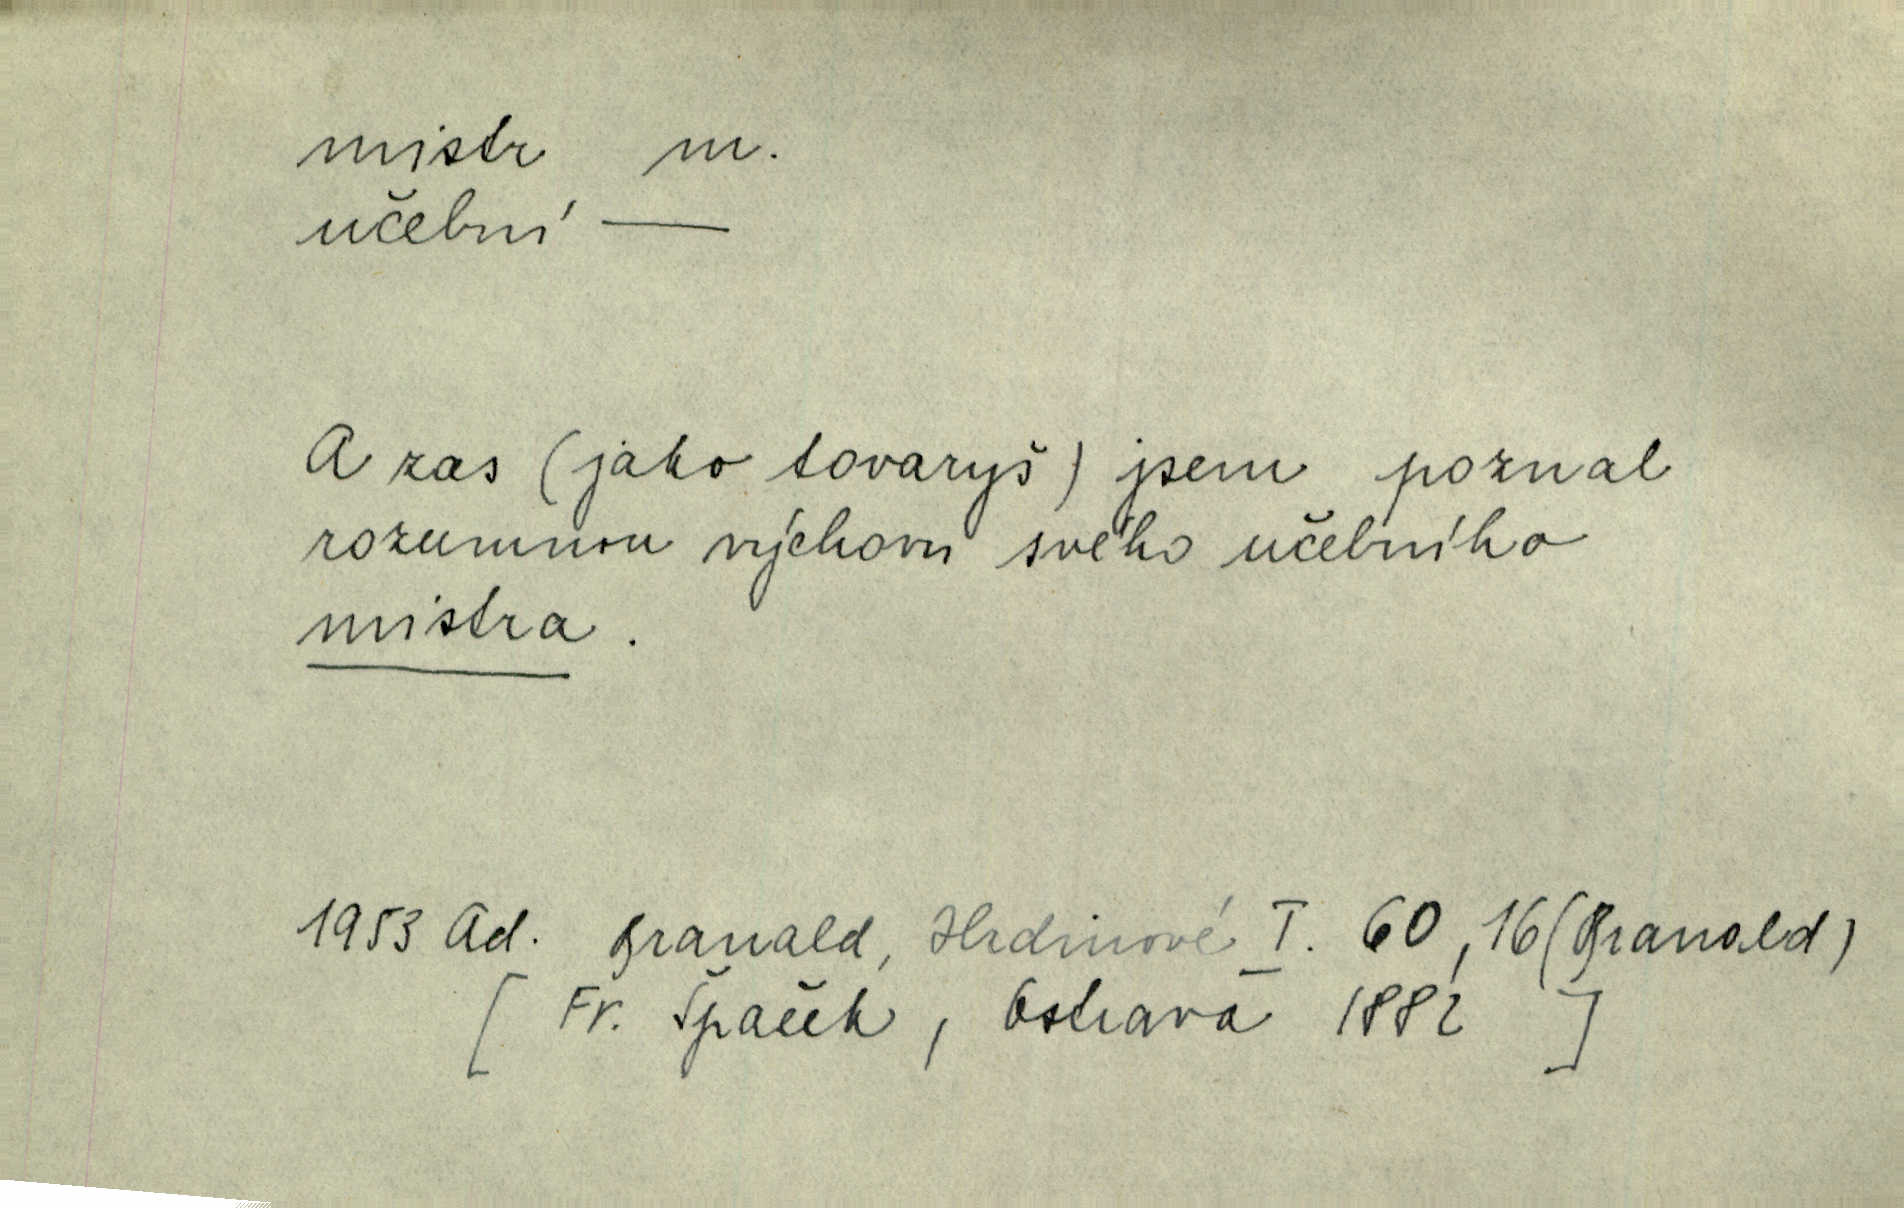 mistr m.
učební —
A zas (jako tovaryš) jsem poznal
rozumnou výchovu svého učebního
mistra.
1953 Ad. Branald, Hrdinové I. 60, 16 (Branald)
[ Fr. Špaček, Ostrava 1882 ]